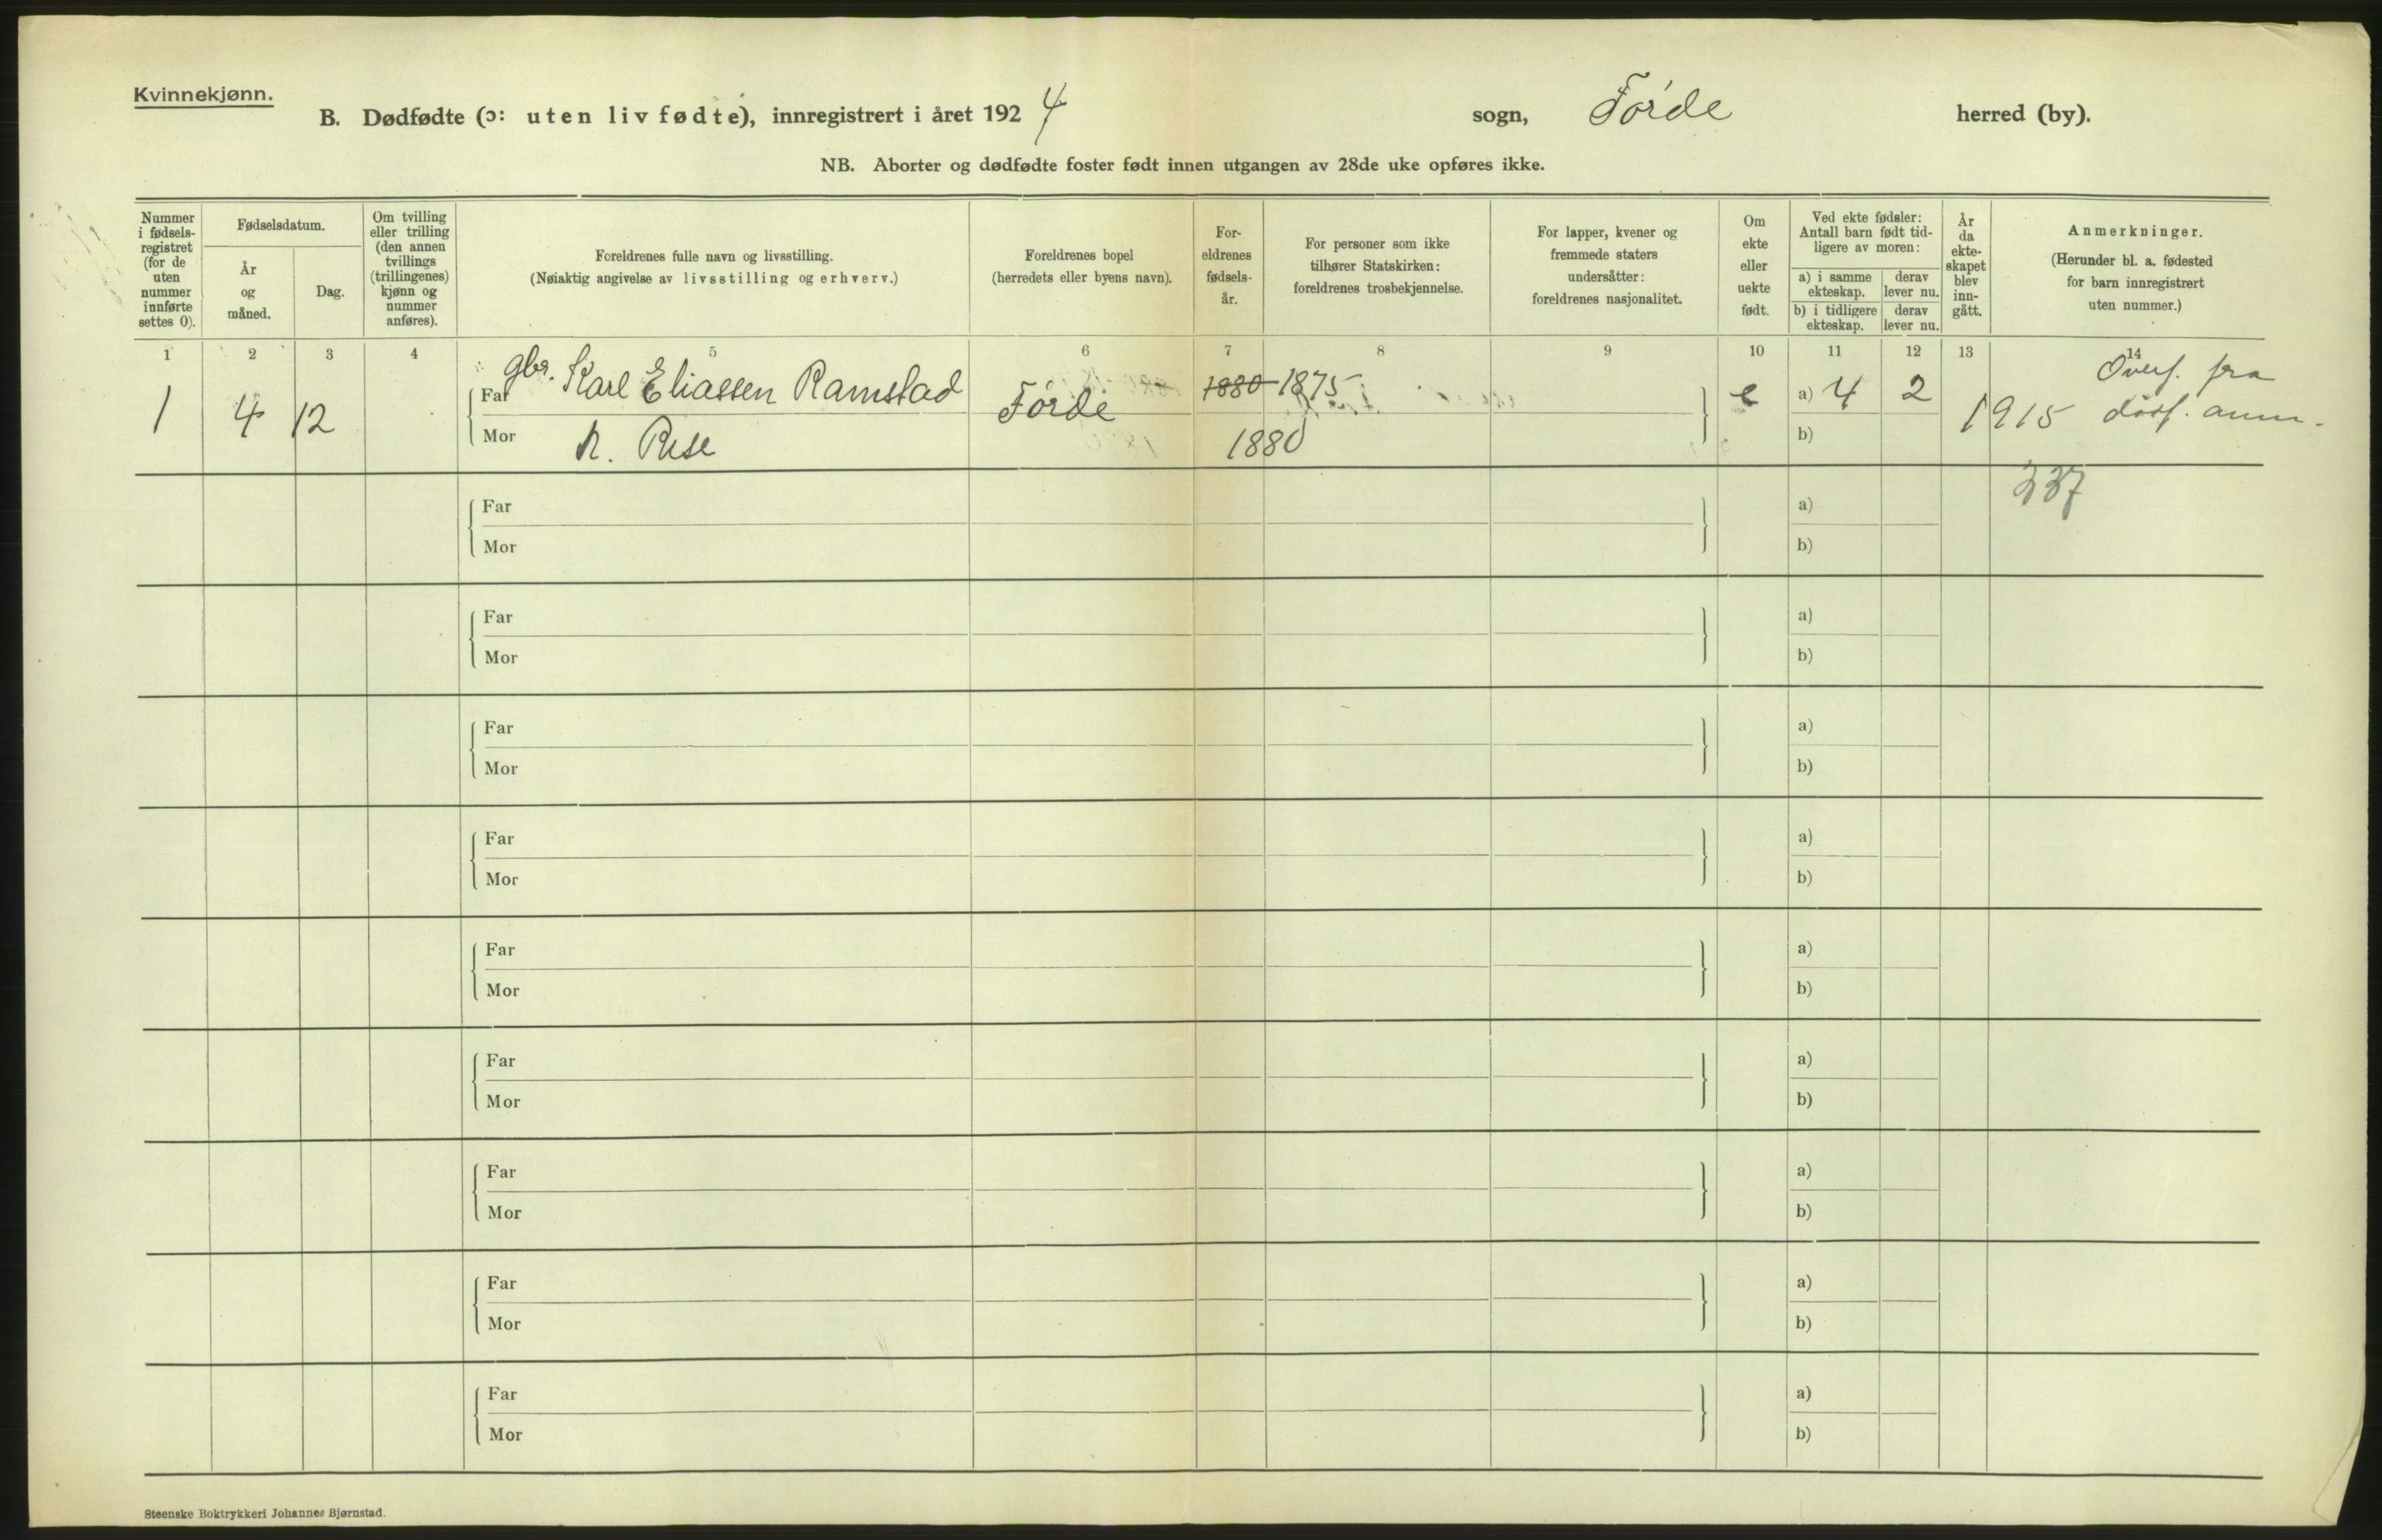 Kvinnekjønn.
B. Dødfødte (ɔ: uten liv fødte), innregistrert i året 1924 sogn, Förde herred (by).
NB. Aborter og dødfødte foster født innen utgangen av 28de uke opføres ikke.
Nummer i fødsels-registret (for de uten nummer innførte settes 0).
Fødselsdatum.
År og måned.
Dag.
Om tvilling eller trilling (den annen tvillings (trillingenes) kjønn og nummer anføres).
Foreldrenes fulle navn og livsstilling.
(Nøiaktig angivelse av livsstilling og erhverv.)
Foreldrenes bopel
(herredets eller byens navn).
For-eldrenes fødsels-år.
For personer som ikke tilhører Statskirken: foreldrenes trosbekjennelse.
For lapper, kvener og fremmede staters undersåtter: foreldrenes nasjonalitet.
Om ekte eller uekte født.
Ved ekte fødsler: Antall barn født tid-ligere av moren:
a) i samme ekteskap. derav lever nu.
b) i tidligere ekteskap. derav lever nu.
År da ekte-skapet blev inn-gått.
Anmerkninger.
(Herunder bl. a. fødested for barn innregistrert uten nummer.)
1 2 3 4 5 6 7 8 9 10 11 12 13 14
1 4 12 Far gbr. Karl Eliassen Ramstad Förde 1880 1875 e a) 4 2 1915 Overf. fra
Mor R. Rise 1880 b) dödf.
237
Far a)
Mor b)
Far a)
Mor b)
Far a)
Mor b)
Far a)
Mor b)
Far a)
Mor b)
Far a)
Mor b)
Far a)
Mor b)
Far a)
Mor b)
Far a)
Mor b)
Steenske Boktrykkeri Johannes Bjørnstad.